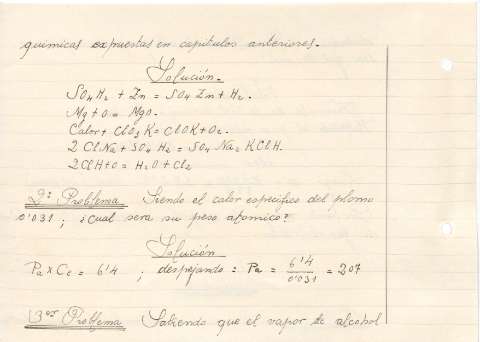 quimicas expuestas en capitulos anteriores.
Solución.
SO4H2 + Zn = SO4Zn + H2.
Mg + O = MgO.
Calor + ClO3K = ClOK + O2.
2 ClNa + SO4H2 = SO4Na2 KClH.
2 ClH + O = H2O + Cl2
2º Problema Siendo el calor especifico del plomo
0'031; ¿Cual sera su peso atomico?
Solución
Pa x Ce = 6'4 ; despejando = Pa = 6'4 / 0'031 = 207
3er Problema Sabiendo que el vapor de alcohol